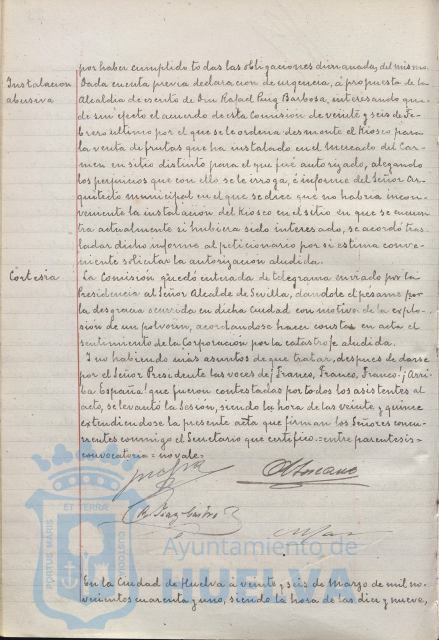 por haber cumplido todas las obligaciones dimanadas del mismo.
Instalacion abusiva
Dada cuenta previa declaracion de urgencia, á propuesta de la
Alcaldia de escrito de Don Rafael Puig Barbosa, interesando que-
de sin efecto el acuerdo de esta Comision de veinte y seis de Fe-
brero ultimo por el que se le ordena desmonte el Kiosco para
la venta de frutas que ha instalado en el Mercado del Car-
men en sitio distinto para el que fué autorizado, alegando
los perjuicios que con ello se le irroga, é informe del Señor Ar-
quitecto municipal en el que se dice que no habria incon-
veniente la instalacion del Kiosco en el sitio en que se encuen-
tra actualmente si hubiera sido interesado, se acordó tras-
ladar dicho informe al peticionario por si estima conve-
niente solicitar la autorizacion aludida.
Cortesia
La Comisión quedó enterada de telegrama enviado por la
Presidencia al Señor Alcalde de Sevilla, dandole el pesame por
la desgracia ocurrida en dicha Ciudad con motivo de la explo-
sión de un polvorin, acordandose hacer constar en acta el
sentimiento de la Corporacion por la catastrofe aludida.
Y no habiendo más asuntos de que tratar, despues de darse
por el Señor Presidente las voces de ¡Franco, Franco, Franco! ¡Arri-
ba España! que fueron contestadas por todos los asistentes al
acto, se levantó la Sesión, siendo la hora de las veinte y quince
extendiendose la presente acta que firman los Señores concu-
rrentes conmigo el Secretario que certifico.=entre parentesis=
convocatoria=no vale=
ET TERRÆ
PORTUS MARIS
CUSTODIA
Ayuntamiento de
HUELVA
En la Ciudad de Huelva á veinte y seis de Marzo de mil no-
vecientos cuarenta y uno, siendo la hora de las diez y nueve,